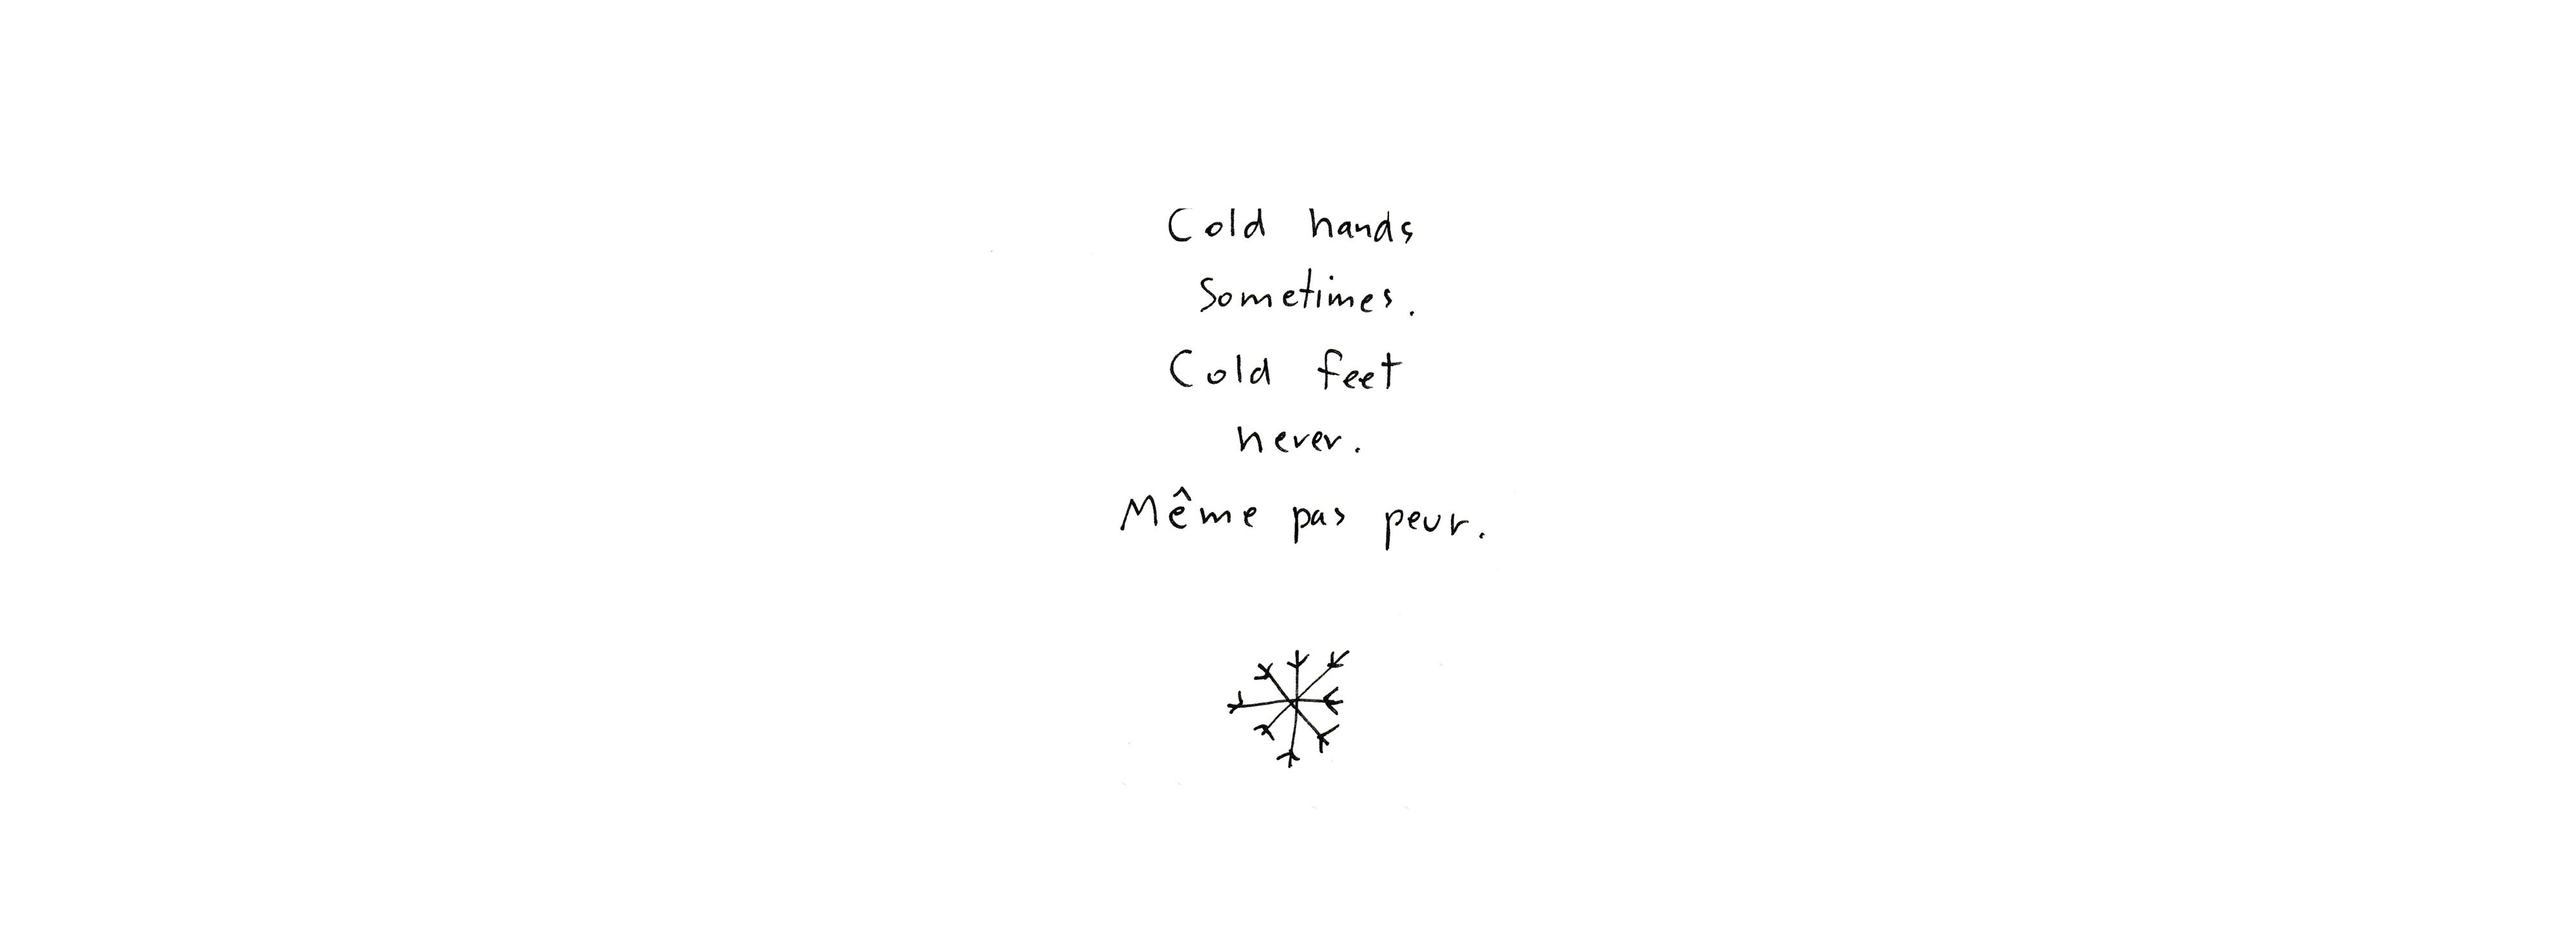 Cold hands
Sometimes.
Cold feet
never.
Même pas peur.